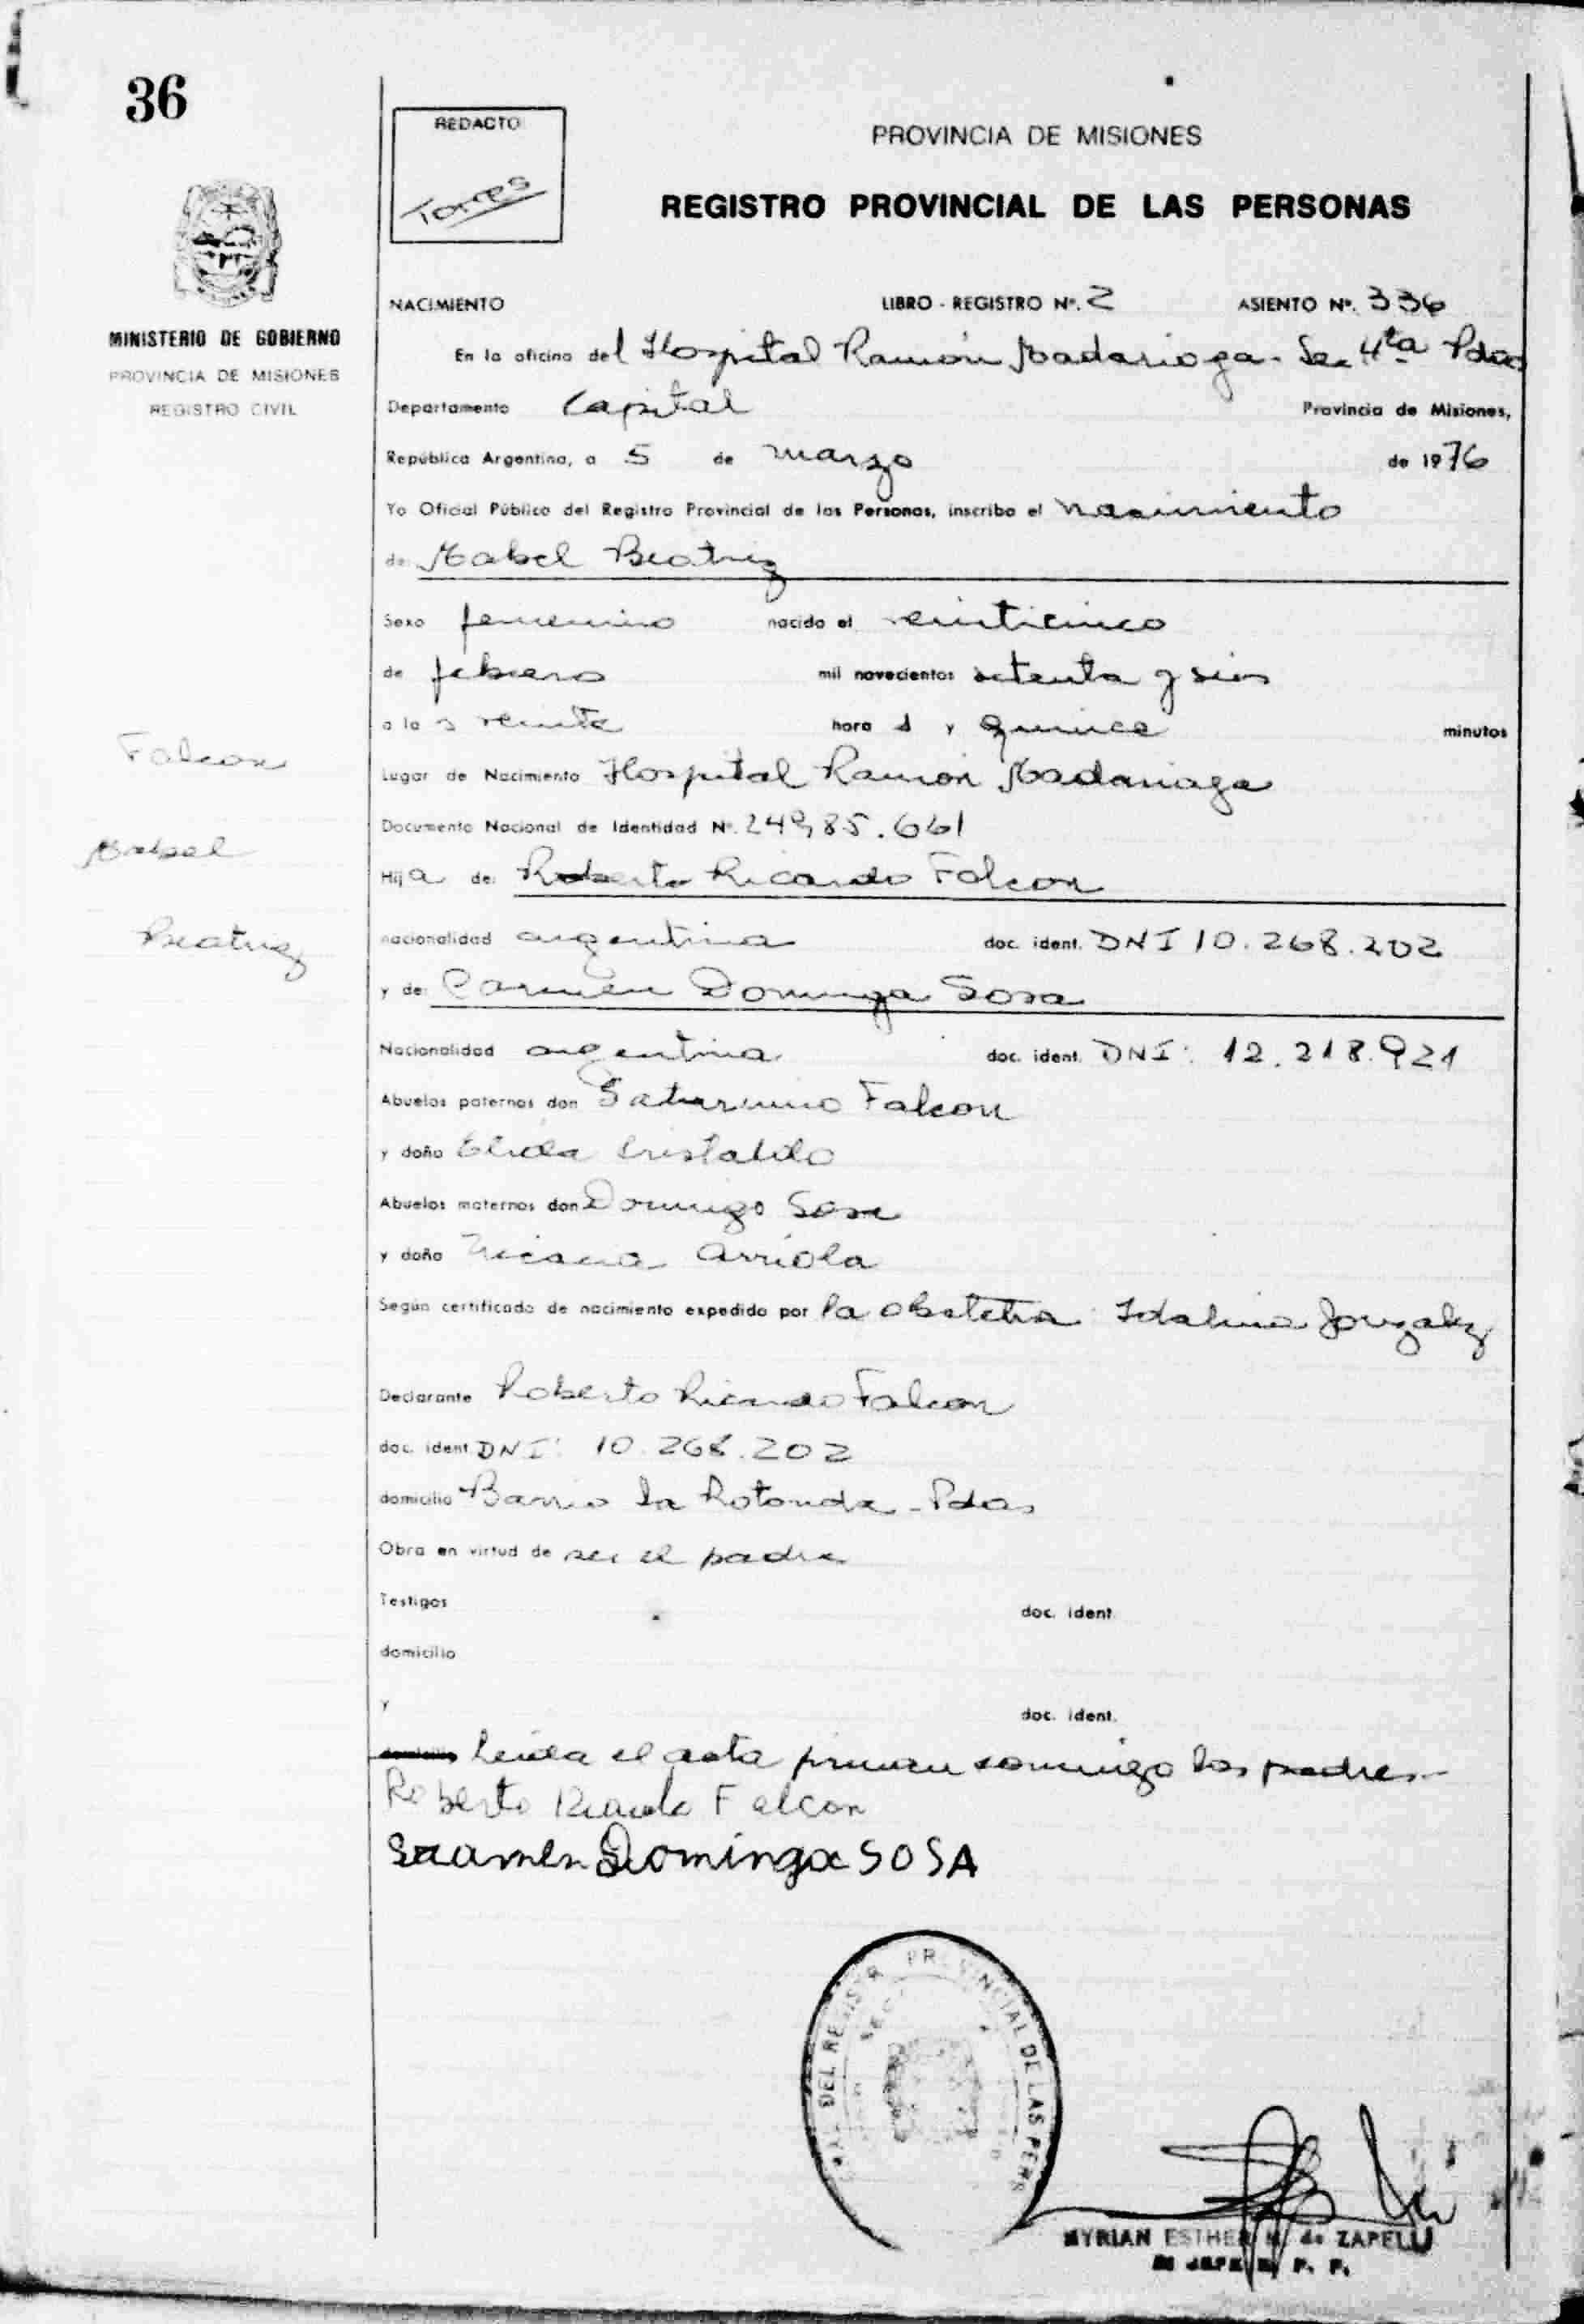 36
REDACTO
Torres
PROVINCIA DE MISIONES
REGISTRO PROVINCIAL DE LAS PERSONAS
MINISTERIO DE GOBIERNO
PROVINCIA DE MISIONES
REGISTRO CIVIL
NACIMIENTO LIBRO - REGISTRO Nº. 2 ASIENTO Nº. 336
En la oficina del Hospital Ramón Madariaga - Sec 4ta Pdas
Departamento Capital Provincia de Misiones,
República Argentina, a 5 de marzo de 1976
Yo Oficial Público del Registro Provincial de las Personas, inscribo el nacimiento
de: Mabel Beatriz
Sexo femenino nacido el veinticinco
de febrero mil novecientos setenta y seis
a las veinte horas y quince minutos
Falcon
Lugar de Nacimiento Hospital Ramón Madariaga
Documento Nacional de Identidad Nº. 24985.661
Mabel
Hija de: Roberto Ricardo Falcon
Beatriz
nacionalidad argentina doc. ident. DNI 10.268.202
y de: Carmen Dominga Sosa
Nacionalidad argentina doc. ident. DNI: 12.218.921
Abuelos paternos don Saturnino Falcon
y doña Elida Cristaldo
Abuelos maternos don Domingo Sosa
y doña Arriola
Según certificado de nacimiento expedido por la obstetra: Idalina Gonzalez
Declarante Roberto Ricardo Falcon
doc. ident. DNI: 10.268.202
domicilio Barrio la Rotonda - Pdas
Obra en virtud de ser el padre
Testigos doc. ident.
domicilio
y doc. ident.
domicilio leida el acta firman conmigo los padres.-
Roberto Ricardo Falcon
Dominga SOSA
DEL REGISTR PROVINCIAL DE LAS PERS
MYRIAN ESTHER M. de ZAPELLI